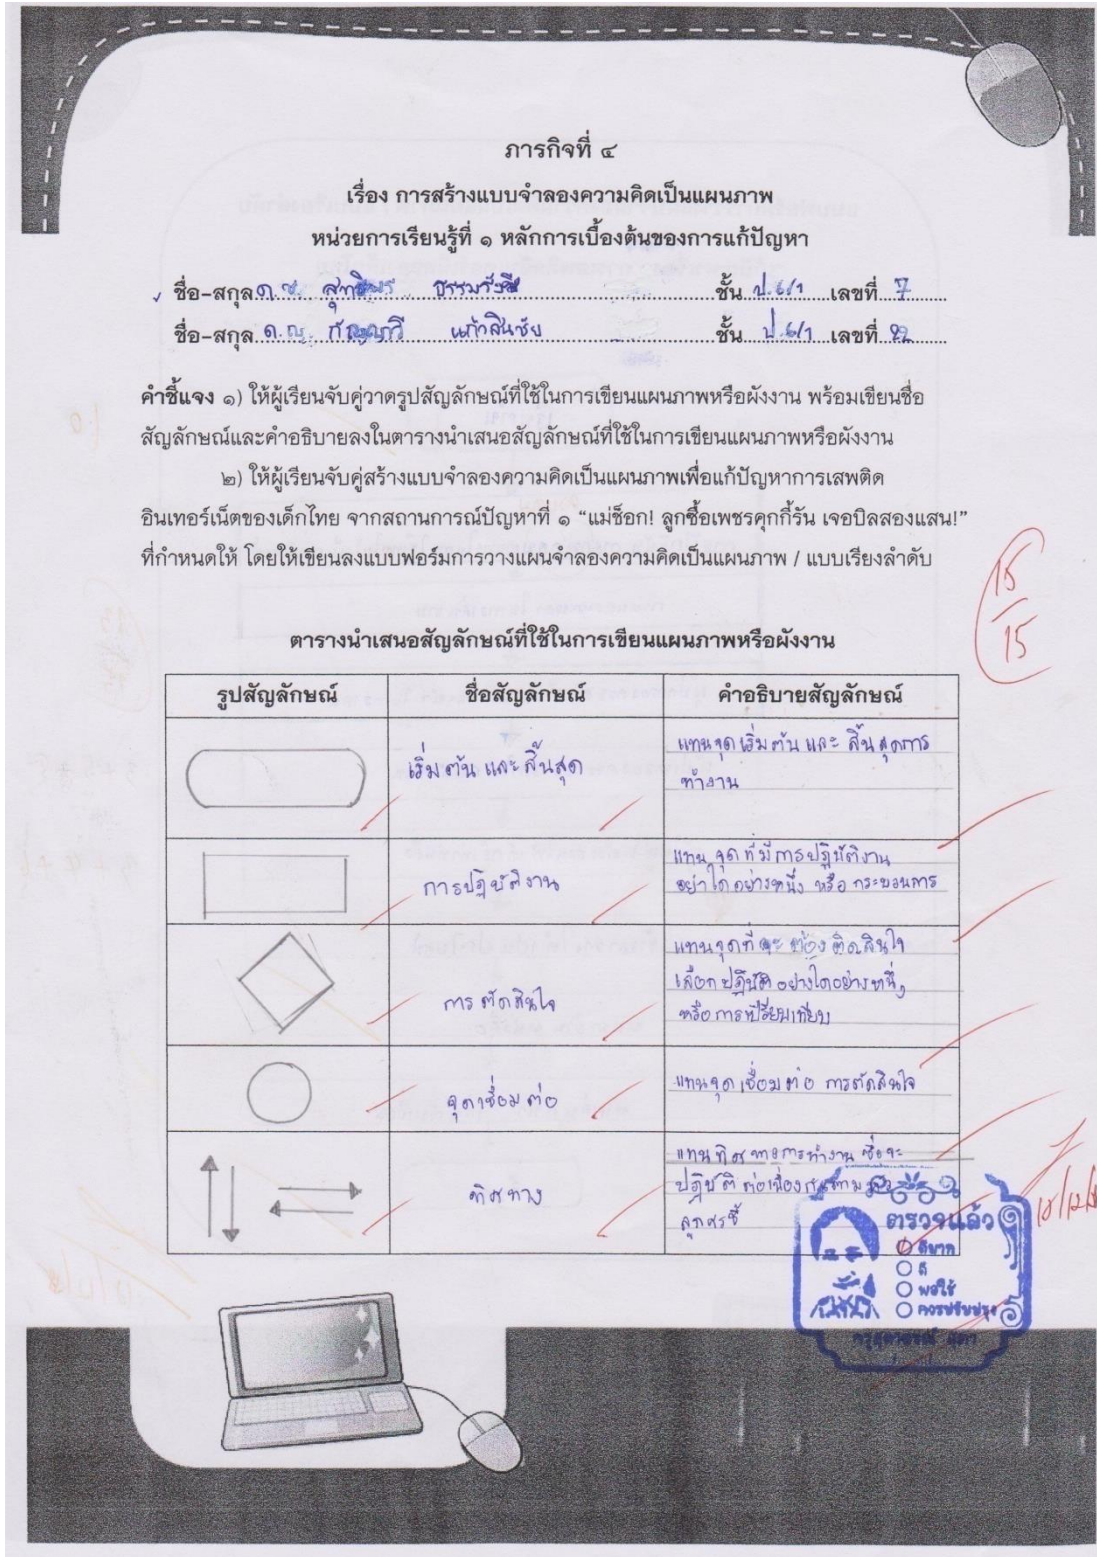 ภารกิจที่ ๔
เรื่อง การสร้างแบบจำลองความคิดเป็นแผนภาพ
หน่วยการเรียนรู้ที่ ๑ หลักการเบื้องต้นของการแก้ปัญหา
ชื่อ-สกุล ด.ช. ชั้น ป.6/1 เลขที่ 7
ชื่อ-สกุล ด.ญ. กัญญาวี แก้วสินชัย ชั้น ป.6/1 เลขที่ 22
คำชี้แจง ๑) ให้ผู้เรียนจับคู่วาดรูปสัญลักษณ์ที่ใช้ในการเขียนแผนภาพหรือผังงาน พร้อมเขียนชื่อ
สัญลักษณ์และคำอธิบายลงในตารางนำเสนอสัญลักษณ์ที่ใช้ในการเขียนแผนภาพหรือผังงาน
๒) ให้ผู้เรียนจับคู่สร้างแบบจำลองความคิดเป็นแผนภาพเพื่อแก้ปัญหาการเสพติด
อินเทอร์เน็ตของเด็กไทย จากสถานการณ์ปัญหาที่ ๑ “แม่ช็อก! ลูกซื้อเพชรคุกกี้รัน เจอบิลสองแสน!”
ที่กำหนดให้ โดยให้เขียนลงแบบฟอร์มการวางแผนจำลองความคิดเป็นแผนภาพ / แบบเรียงลำดับ
15
15
ตารางนำเสนอสัญลักษณ์ที่ใช้ในการเขียนแผนภาพหรือผังงาน
รูปสัญลักษณ์ ชื่อสัญลักษณ์ คำอธิบายสัญลักษณ์
เริ่มต้น และ สิ้นสุด
แทนจุดเริ่มต้น และ สิ้นสุดการ
ทำงาน
การปฏิบัติงาน
แทน จุดที่มีการปฏิบัติงาน
อย่าใดอย่างหนึ่ง หรือ กระบวนการ
การตัดสินใจ
แทนจุดที่จะต้องตัดสินใจ
เลือกปฏิบัติอย่างใดอย่างหนึ่ง
หรือการเปรียบเทียบ
จุดเชื่อมต่อ
แทนจุดเชื่อมต่อ การตัดสินใจ
ทิศทาง
แทนทิศทางการทำงาน ซึ่งจะ
ปฏิบัติ ต่อเนื่องกันตาม
ลูกศรชี้
ตรวจแล้ว
ดีมาก
ดี
พอใช้
ควรปรับปรุง